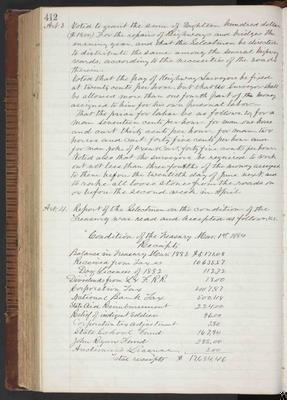 412
Art. 3. Voted to grant the sum of Eighteen hundred dollars
($1800) For the repairs of Highways and bridges the
ensuing year, and that the Selectmen be directed
to distribute the same among the several highway
wards, according to the necessities of the roads
therein.
Voted that the pay of Highway Surveyors be fixed
at twenty cents per hour, but that no Surveyor shall
be allowed more than one fourth part of the money
assigned to him for his own personal labor.
That the price for labor be as follows, for a
man seventeen cents per hour for man one horse
and cart thirty cents per hour, for man, two
horses and cart forty five cents per hour and
for man yoke of oxen & cart forty five cents per hour.
Voted also that the surveyors be required to work
out not less than three fourths of the money assigned
to them before the twentieth day of June next and
to remove all loose stones from the roads on
or before the second week in April.
Art. 4. Report of the Selectmen on the condition of the
Treasury was read and accepted as follows, viz.
Condition of the Treasury Mar. 1st 1884
Receipts
Balance in Treasury Mar.
Received from Taxes
Dog Licenses of 1882 112.72
Dividends from R.R.
Corporation Tax
National Bank Tax
State Aid Reimbursement 224.00
Relief of indigent Soldiers
Corporation tax Adjustment
State School Fund
John Fund
Auctioneers License 2.00
Total receipts $